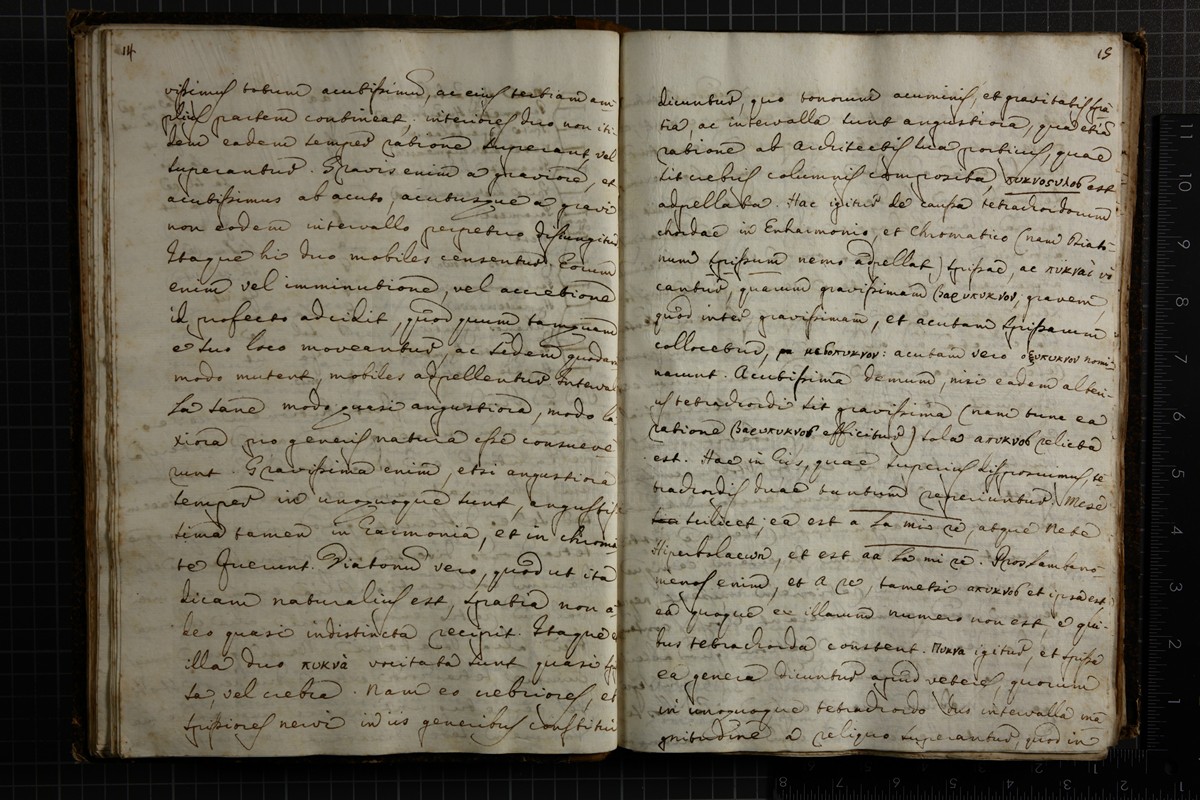 14
vissimus totum acutissimum, ac eius tertiam am
plius partem contineat: interites duo non iti
dem eadem semper ratione superant, vel
superantur. Gravis enim a graviore, et
acutissimus ab acuto, acutusque a gravi
non eodem intervallo perpetuo disiungitur
Itaque hi duo mobiles censentur. Eorum
enim vel imminutione, vel accretione
id profecto accidit, quod quum tamquam
e suo loco moveantur, ac sedem quodam
modo mutent, mobiles appellentur. Interval
la sane modo quasi angustiora, modo la
xiora pro generis natura esse consueve
runt. Gravissima enim, etsi angustiora
semper in unoquoque sunt, angustis
sima tamen in Earmonia, et in chroma
te fuerunt. Diatonum vero, quod ut ita
dicam naturalius est, spatia non a
deo quasi indistincta recipit. Itaque
illa duo πυκνὰ vocitata sunt quasi sp
sa, vel crebra. Nam eo crebriores, et
spissiores nervi in iis generibus constitui
15
dicuntur, quo tonorum acuminis, et gravitatis spa-
tia, ac intervalla sunt angustiora, qua etiam
ratione ab Architectis sua porticus, quae
sit crebris columnis composita, πυκνοςυλος est
adpellata. Hac igitur de causa tetrachordorum
chordae in Enharmonio, et Chromatico (nam Diato-
num spissum nemo adpellat) spissae, ac πυκναὶ vo
cantur, quarum gravissimam βαρυπυκνον, gravem,
quod inter gravissimam, et acutam spissarum
collocetur, μεσοπυκνον: acutam vero οξυπυκνον nomi-
narunt. Acutissima demum, nisi eadem alteri-
us tetrachordi sit gravissima (nam tunc ea
ratione βαρυπυκνος efficitur) sola απυκνος relicta
est. Hae in Eis, quae superius disposuimus, te
trachordis duae tantum reperiuntur, Mese
scilicet; ea est a la mi re, atque Nete
Hiperbolaeωn, et est aa la mi re. Proslambano-
menos enim, et A re, tametsi απυκνος et ipsa est,
ea quoque ex illarum numero non est, e qui-
bus tetrachorda constent. Πυκνα igitur, et spissa
ea genera dicuntur apud veteres, quorum
in unoquoque tetrachordo duo intervalla ma-
gnitudine a reliquo superantur, quod in